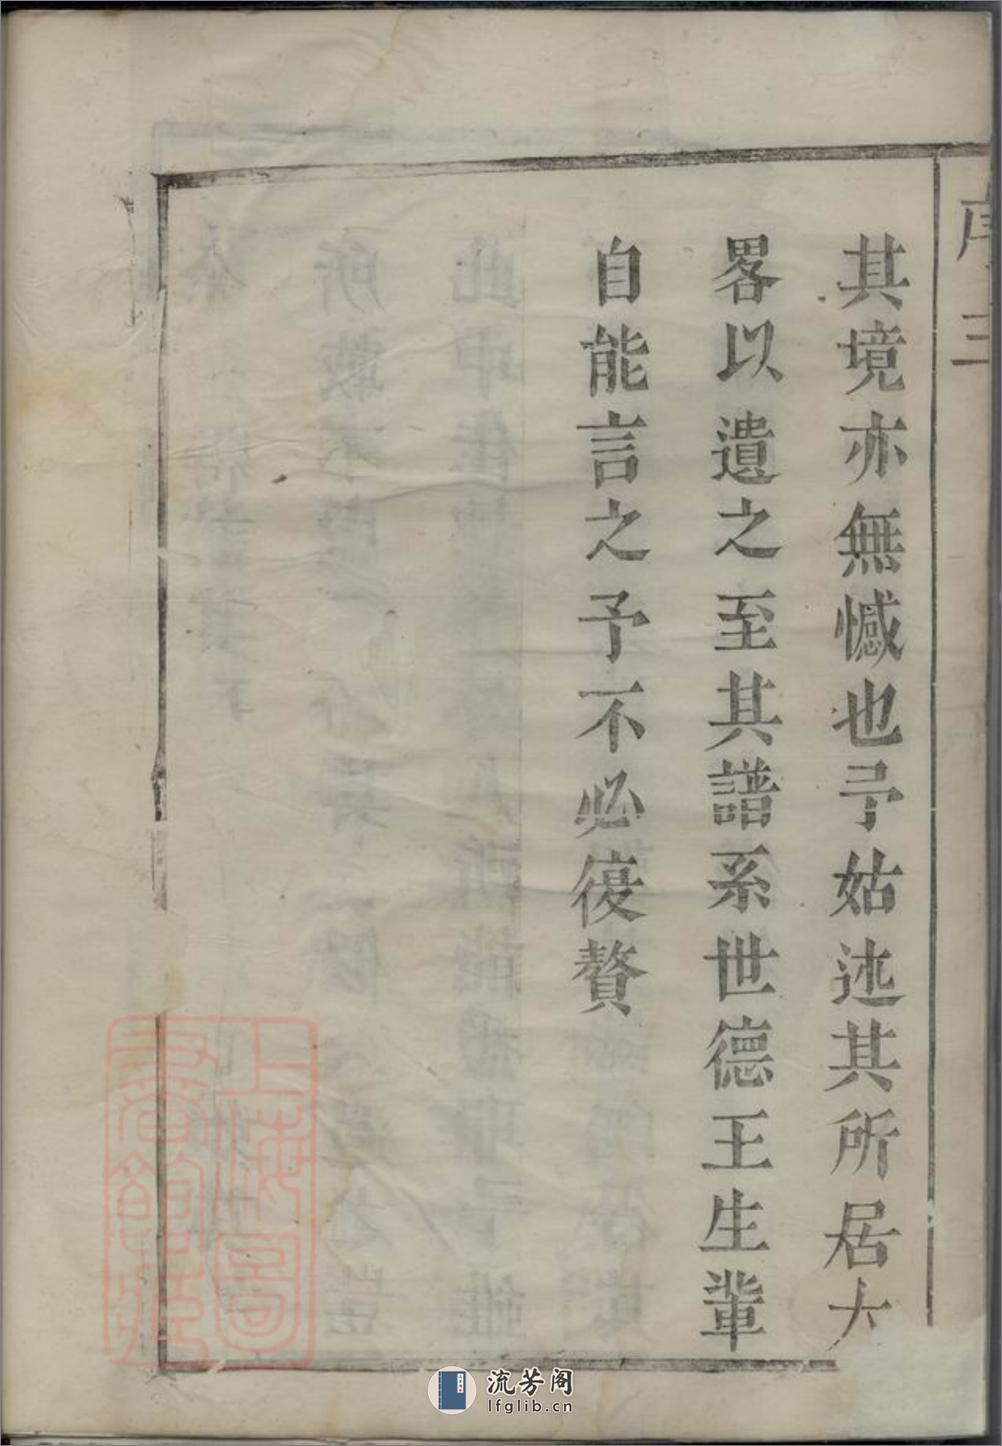 序 三
其境亦無憾也予姑述其所居大
畧以遺之至其譜系世德王生輩
自能言之予不必復贅
上海圖書館藏
流芳阁
lfglib.cn